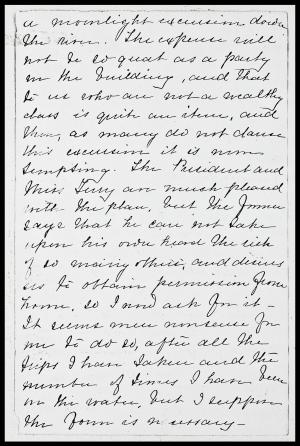 a moonlight excursion down
the river. The expense will
not be so great as a party
in the building, and that
to us who are not a wealthy
class is quite an item, and
then, as many do not dance
this excursion it is more
tempting. The President and
Miss Terry are much pleased
with the plan, but the former
says that he can not take
upon his own head the risk
of so many others, and desires
us to obtain permission from
home, so I now ask for it –
It seems mere nonsense for
me to do so, after all the
trips I have taken and the
number of times I have been
on the water, but I suppose
the form is necessary –